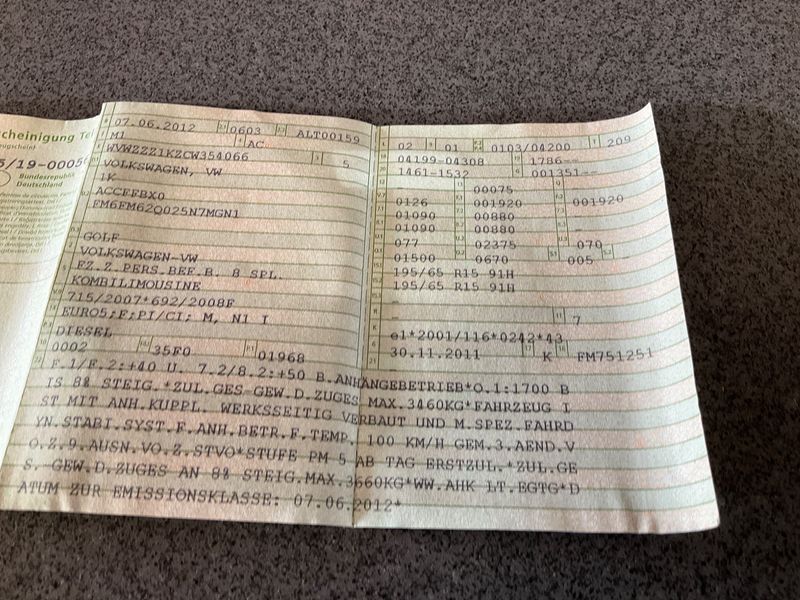 cheinigung Te
ugschein)
5/19-0005
Bundesrepublik
Deutschland
07.06.2012 0603 ALT00159
M1 AC
WVWZZZ1KZCW354066 5
VOLKSWAGEN, VW
1K
ACCFFBX0
FM6FM62Q025N7MGN1
GOLF
VOLKSWAGEN-VW
FZ.Z.PERS.BEF.B. 8 SPL.
KOMBILIMOUSINE
715/2007*692/2008F
EURO5;F;PI/CI; M, N1 I
DIESEL
0002 35F0 01968
02 01 0103/04200 209
04199-04308 1786--
1461-1532 001351--
- 00075
0126 001920 001920
01090 00880
01090 00880
077 02375 070
01500 0670 005
195/65 R15 91H
195/65 R15 91H
-
- 7
e1*2001/116*0242*43
30.11.2011 K FM751251
F.1/F.2:+40 U. 7.2/8.2:+50 B.ANHÄNGEBETRIEB*O.1:1700 B
IS 8% STEIG.*ZUL.GES-GEW.D.ZUGES MAX.3460KG*FAHRZEUG I
ST MIT ANH.KUPPL. WERKSSEITIG VERBAUT UND M.SPEZ.FAHRD
YN.STABI.SYST.F.ANH.BETR.F.TEMP. 100 KM/H GEM.3.AEND.V
O.Z.9.AUSN.VO.Z.STVO*STUFE PM 5 AB TAG ERSTZUL.*ZUL.GE
S.-GEW.D.ZUGES AN 8% STEIG.MAX.3660KG*WW.AHK LT.EGTG*D
ATUM ZUR EMISSIONSKLASSE: 07.06.2012*